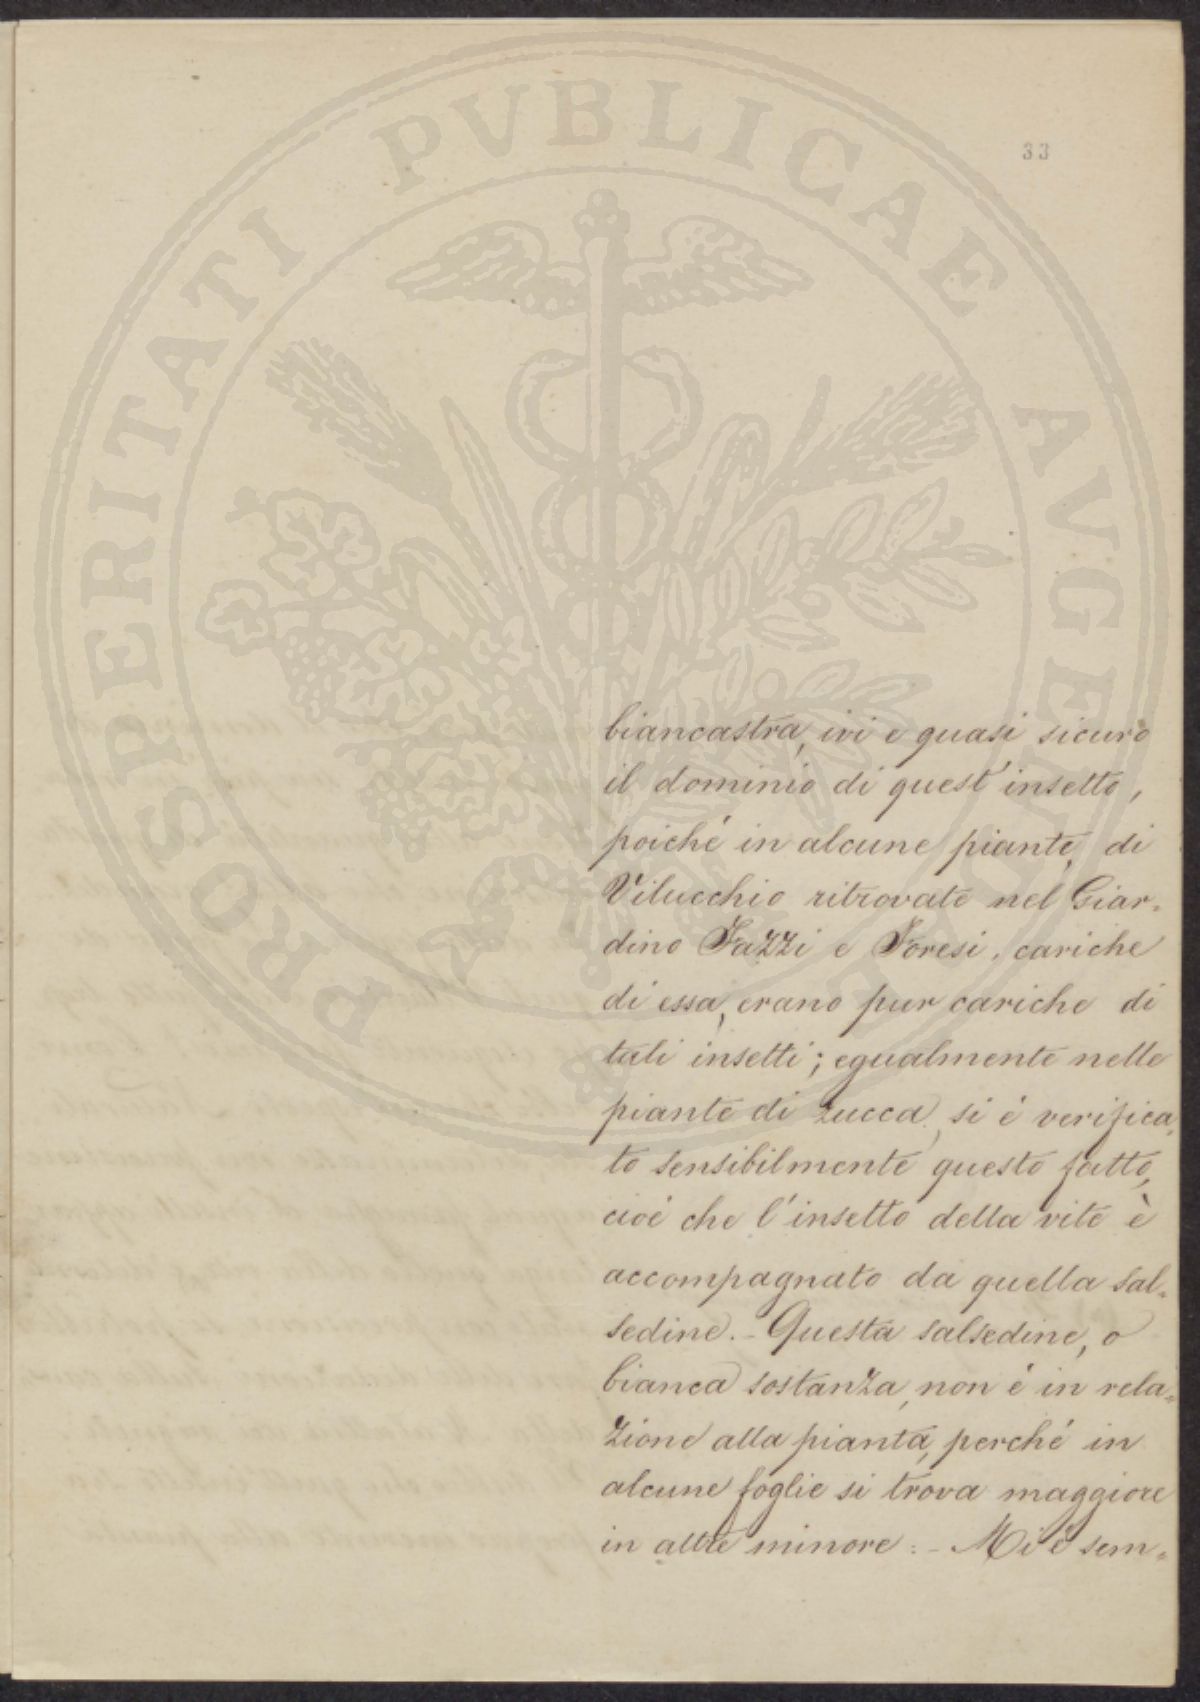 PROSPERITATI PVBLICAE AVGENDAE
33
biancastra, ivi e quasi sicuro
il dominio di quest'insetto,
poiché in alcune piante, di
Vilucchio ritrovate nel Giar-
dino Fazzi e Foresi, cariche
di essa, erano pur cariche di
tali insetti; egualmente nelle
piante di zucca, si é verifica-
to sensibilmente questo fatto,
cioé che l'insetto della vite è
accompagnato da quella sal-
sedine. - Questa salsedine, o
bianca sostanza, non é in rela-
zione alla pianta, perché in
alcune foglie si trova maggiore
in altre minore: - Mi é sem-